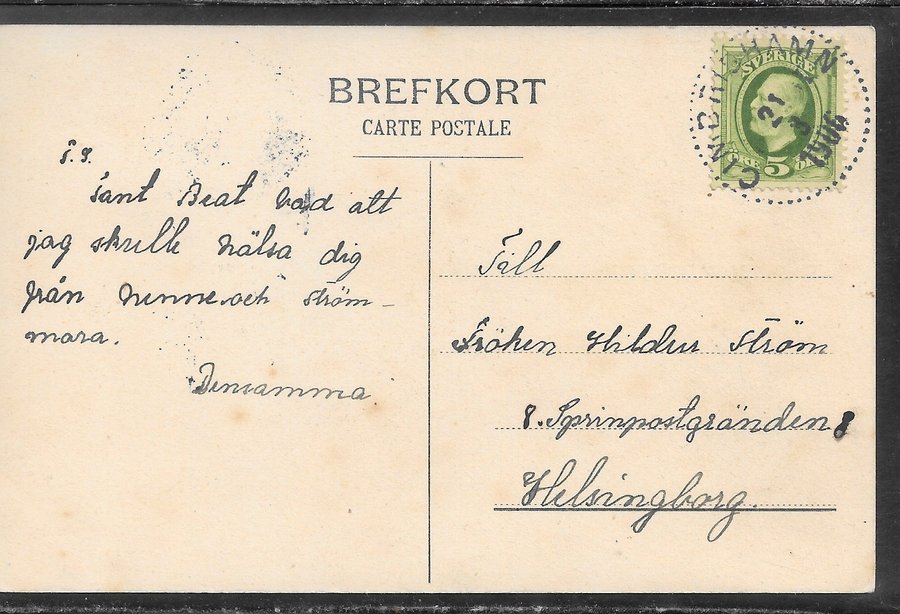 BREFKORT
CARTE POSTALE
SVERIGE
5
CIMBRISHAMN
21
3
1906
P.S.
Tant Beat bad att
jag skulle hälsa dig
från henne och Ström-
mara.
Densamma
Till
Fröken Hildur Ström
8. Sprinpostgränden 8
Helsingborg.